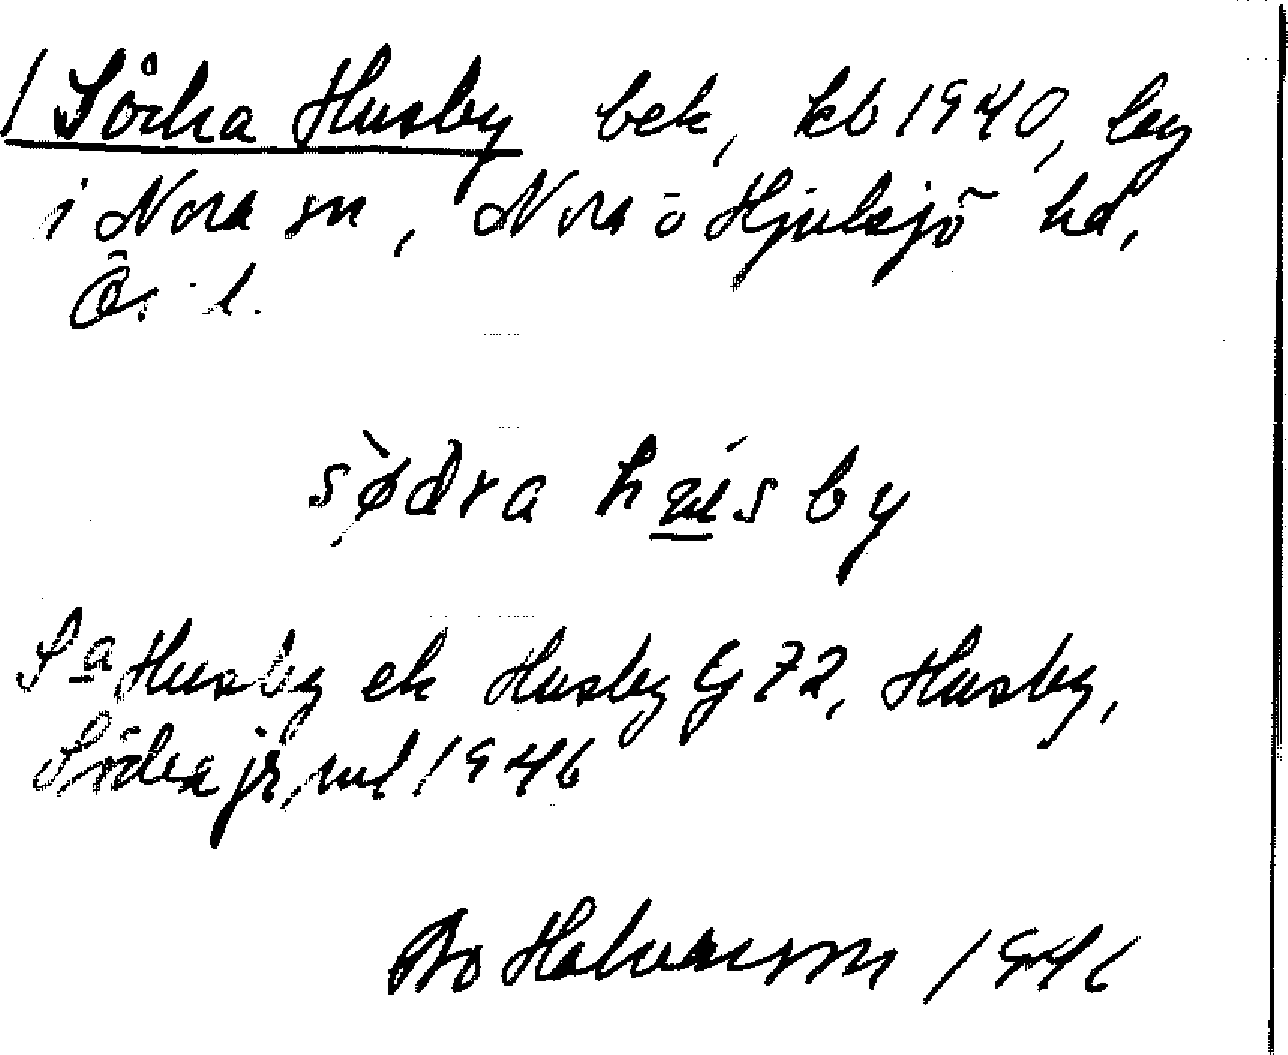 / Södra Husby bek, kb 1940, by
i Nora sn, Nora o Hjulsjö hd,
Ör. l.
södra husby
Sa Husby ek Husby G 72, Husby,
Södra jr, ml 1946
Bo Halvarsson 1946